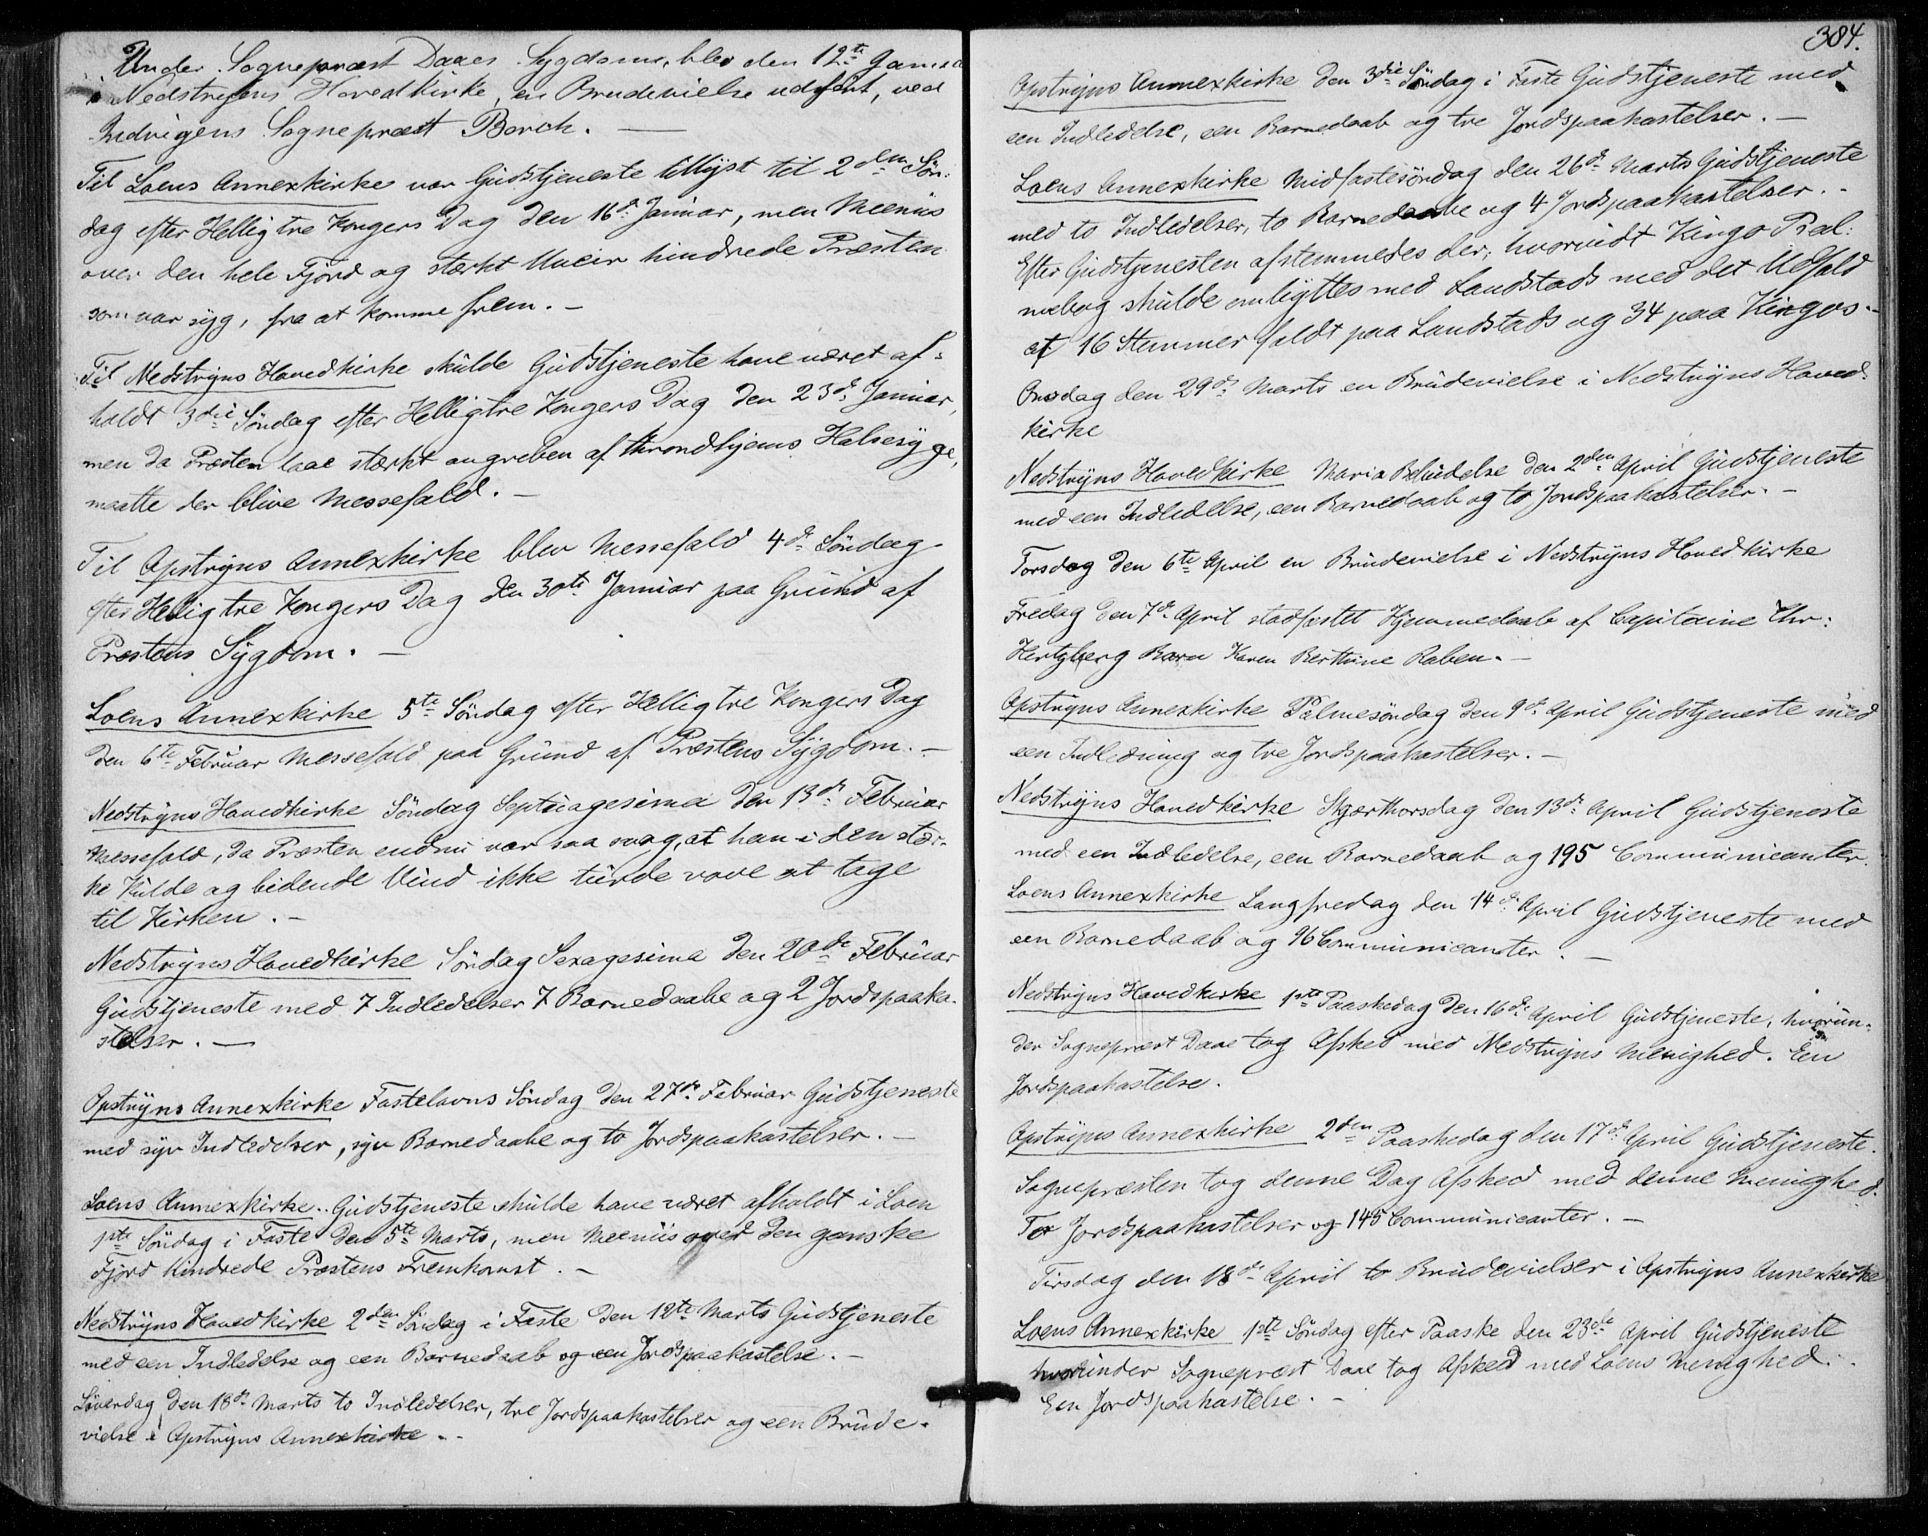 Under Sognepræst Daaes Sygdom, blev den 12te Januar
i Nedstryns Hovedkirke, en Brudevielse udført, ved
Indvigens Sognepræst Borch. —
Til Loens Annexkirke var Gudstjeneste tillyst til 2den Søn-
dag efter Hellig tre Kongers Dag den 16de Januar, men Meeniis
over den hele Fjord og stærkt Uveir hindrede Præsten
som var syg, fra at komme frem. —
Til Nedstryns Hovedkirke skulde Gudstjeneste have været af-
holdt 3die Søndag efter Hellig tre Kongers Dag den 23de Januar,
men da Præsten laae stærkt angreben af Throndhjems Halssyge,
maatte der blive Messefald. —
Til Opstryns Annexkirke blev Messefald 4de Søndag
efter Hellig tre Kongers Dag den 30te Januar paa Grund af
Præstens Sygdom. —
Loens Annexkirke 5te Søndag efter Hellig tre Kongers Dag
den 6te Februar Messefald paa Grund af Præstens Sygdom. —
Nedstryns Hovedkirke Søndag Septuagesima den 13de Februar
Messefald, da Præsten endnu var saa svag, at han i den stær-
ke Kulde og bidende Vind ikke turde vove at tage
til Kirken. —
Nedstryns Hovedkirke Søndag Sexagesima den 20de Februar
Gudstjeneste med 7 Indledelser 7 Barnedaabe og 2 Jordspaaka-
stelser. —
Opstryns Annexkirke Fastelavns Søndag den 27de Februar Gudstjeneste
med syv Indledelser, syv Barnedaabe og to Jordspaakastelser. —
Loens Annexkirke. Gudstjeneste skulde have været afholdt i Loen
1ste Søndag i Faste den 5te Marts, men Meeniis over den ganske
Fjord hindrede Præstens Fremkomst. —
Nedstryns Hovedkirke 2den Søndag i Faste den 12te Marts Gudstjeneste
med een Indledelse og een Barnedaab og een Jordspaakastelse. —
Løverdag den 18de Marts to Indledelser, tre Jordspaakastelser og een Brude-
vielse i Opstryns Annexkirke. —
384.
Opstryns Annexkirke den 3die Søndag i Faste Gudstjeneste med
een Indledelse, een Barnedaab og tre Jordspaakastelser. —
Loens Annexkirke Midfastesøndag den 26de Marts Gudstjeneste
med to Indledelser, to Barnedaabe og 4 Jordspaakastelser. —
Efter Gudstjenesten afstemmedes der, hvorvidt Kingo Psal-
mebog skulde ombyttes med Landstads med det Udfald
at 16 Stemmer faldt paa Landstads og 34 paa Kingos. —
Onsdag den 29de Marts en Brudevielse i Nedstryns Hoved-
kirke
Nedstryns Hovedkirke Maria Bebudelse den 2den April Gudstjeneste
med een Indledelse, een Barnedaab og to Jordspaakastelser. —
Torsdag den 6te April en Brudevielse i Nedstryns Hovedkirke
Fredag den 7de April stadfæstet Hjemmedaab af Capitaine Chr:
Hertzberg Barn Karen Berthine Raben. —
Opstryns Annexkirke Palmesøndag den 9de April Gudstjeneste med
een Indledning og tre Jordspaakastelser. —
Nedstryns Hovedkirke Skjærthorsdag den 13de April Gudstjeneste
med een Indledelse, een Barnedaab og 195 Communicanter.
Loens Annexkirke Langfredag den 14de April Gudstjeneste med
een Barnedaab og 96 Communicanter. —
Nedstryns Hovedkirke 1ste Paaskedag den 16de April Gudstjeneste, hvorun-
der Sognepræst Daae tog Afsked med Nedstryns Menighed. Een
Jordspaakastelse.
Opstryns Annexkirke 2den Paaskedag den 17de April Gudstjeneste.
Sognepræsten tog denne Dag Afsked med denne Menighed.
To Jordspaakastelser og 145 Communicanter. —
Tirsdag den 18de April to Brudevielser i Opstryns Annexkirke
Loens Annexkirke 1ste Søndag efter Paaske den 23de April Gudstjeneste
hvorunder Sognepræst Daae tog Afsked med Loens Menighed. —
Een Jordspaakastelse. —